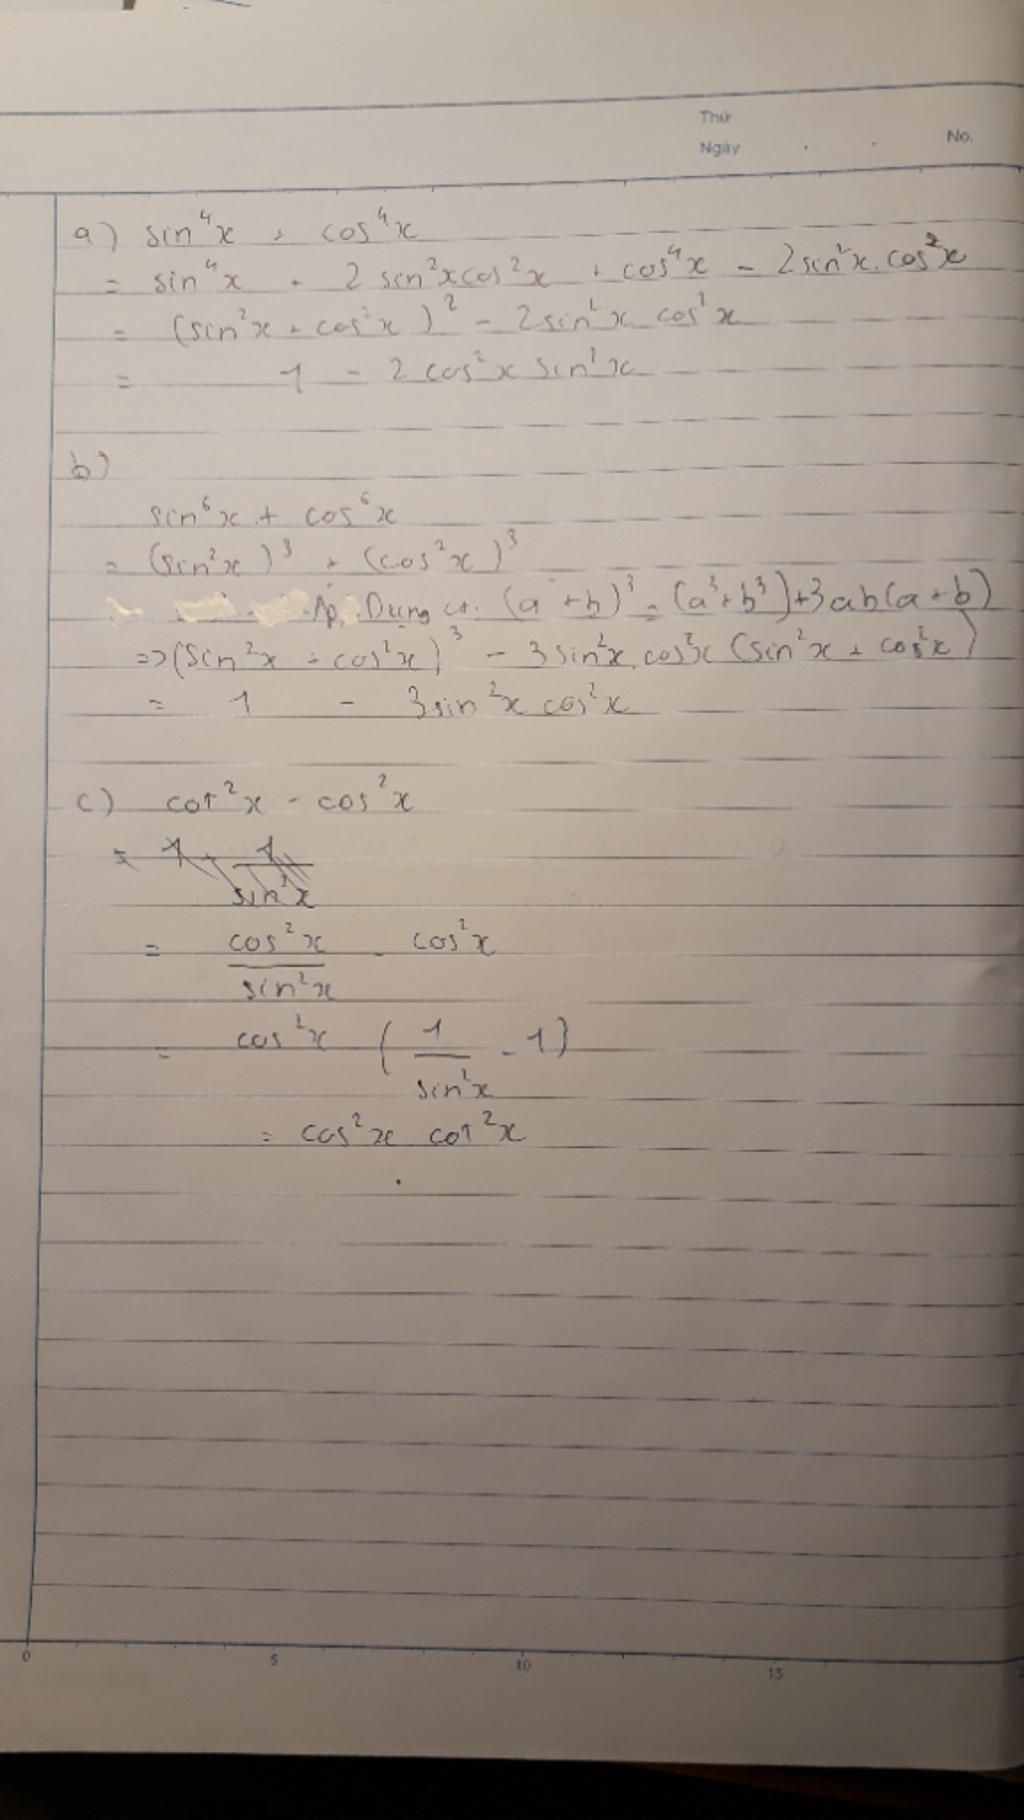 Thứ
Ngày . . No.
a) sin⁴x + cos⁴x
= sin⁴x + 2 sin²xcos²x + cos⁴x - 2sin²x.cos²x
= (sin²x + cos²x)² - 2sin²x cos²x
= 1 - 2 cos²x sin²x
b)
sin⁶x + cos⁶x
= (sin²x)³ + (cos²x)³
Áp Dụng ct: (a+b)³ = (a³+b³)+3ab(a+b)
=>(sin²x + cos²x)³ - 3sin²x.cos²x (sin²x + cos²x)
= 1 - 3sin²x cos²x
c) cot²x - cos²x
= cos²x/sin²x - cos²x
= cos²x (1/sin²x - 1)
= cos²x cot²x
0 5 10 15